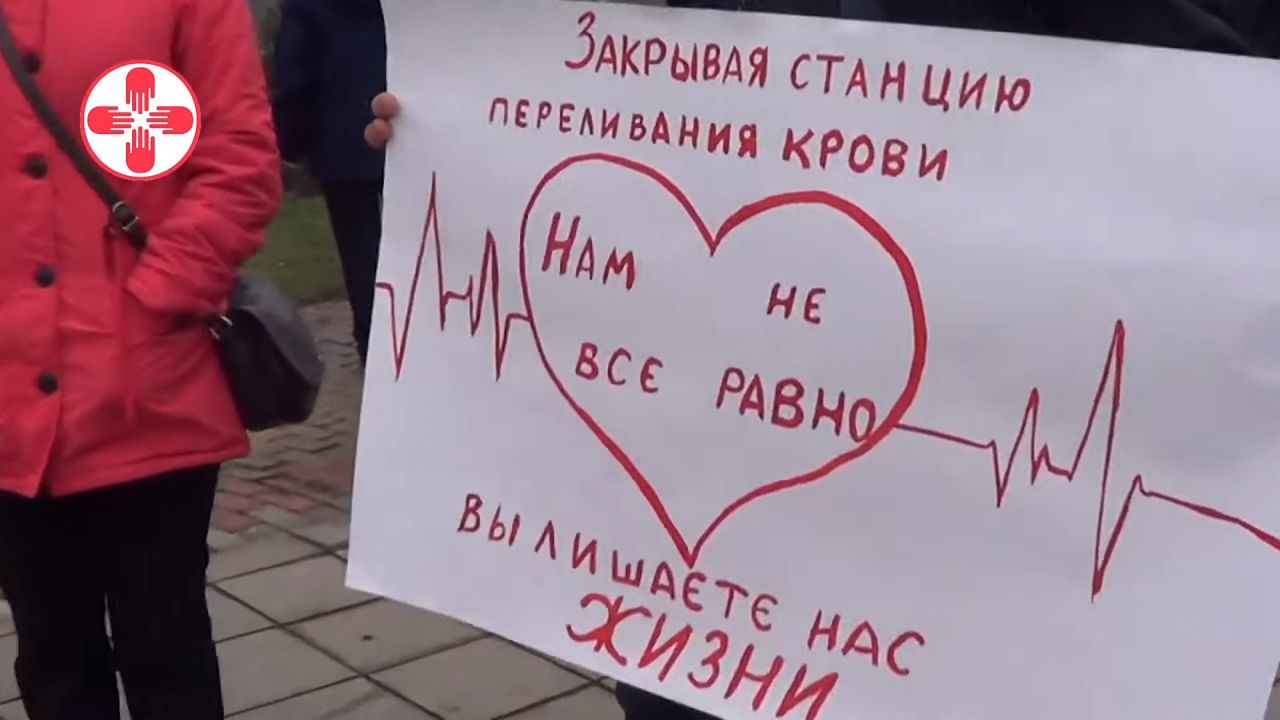 Закрывая станцию
переливания крови
Нам не
всє равно
вы лишаєтє нас
жизни